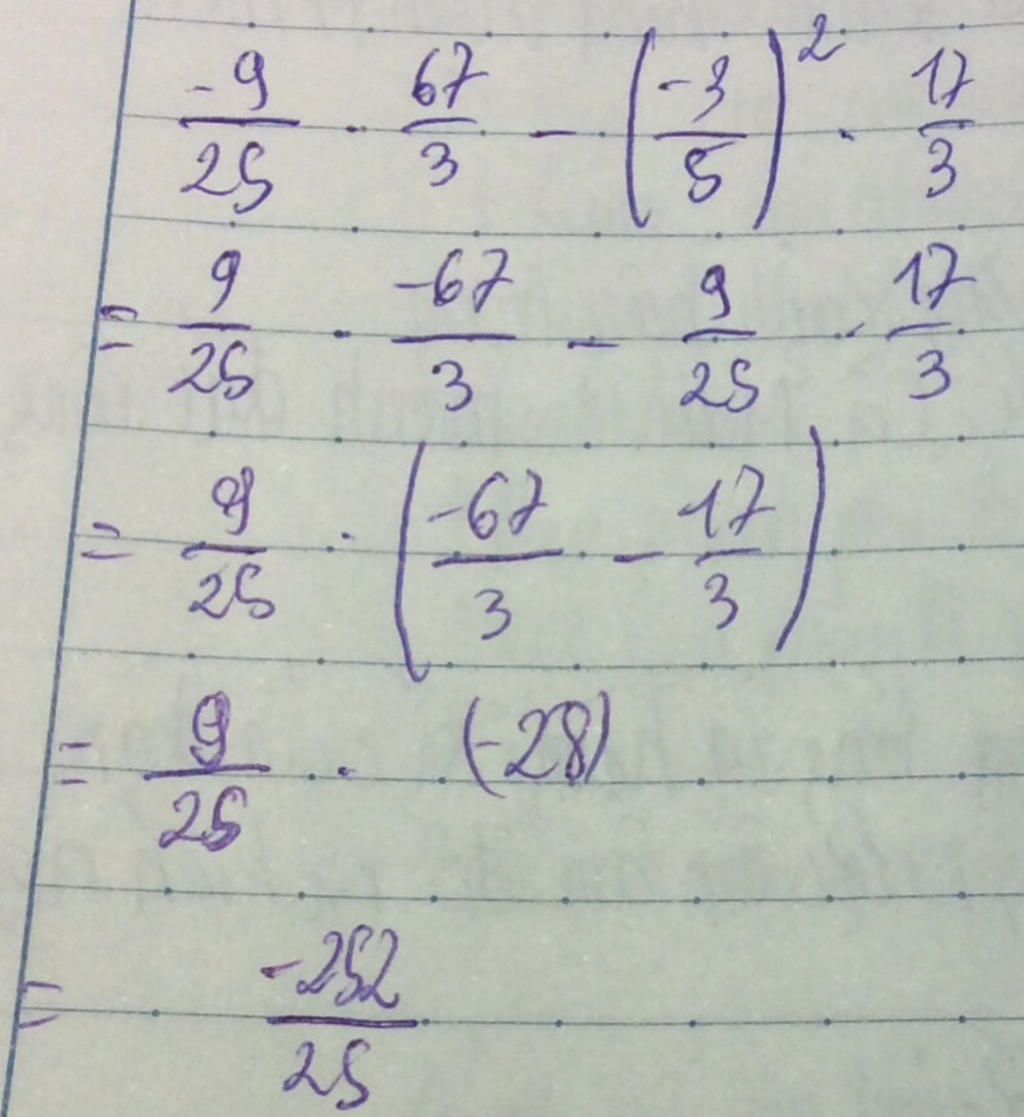 \frac{-9}{25} \cdot \frac{67}{3} - \left(\frac{-3}{5}\right)^2 \cdot \frac{17}{3}
= \frac{9}{25} \cdot \frac{-67}{3} - \frac{9}{25} \cdot \frac{17}{3}
= \frac{9}{25} \cdot \left(\frac{-67}{3} - \frac{17}{3}\right)
= \frac{9}{25} \cdot (-28)
= \frac{-252}{25}